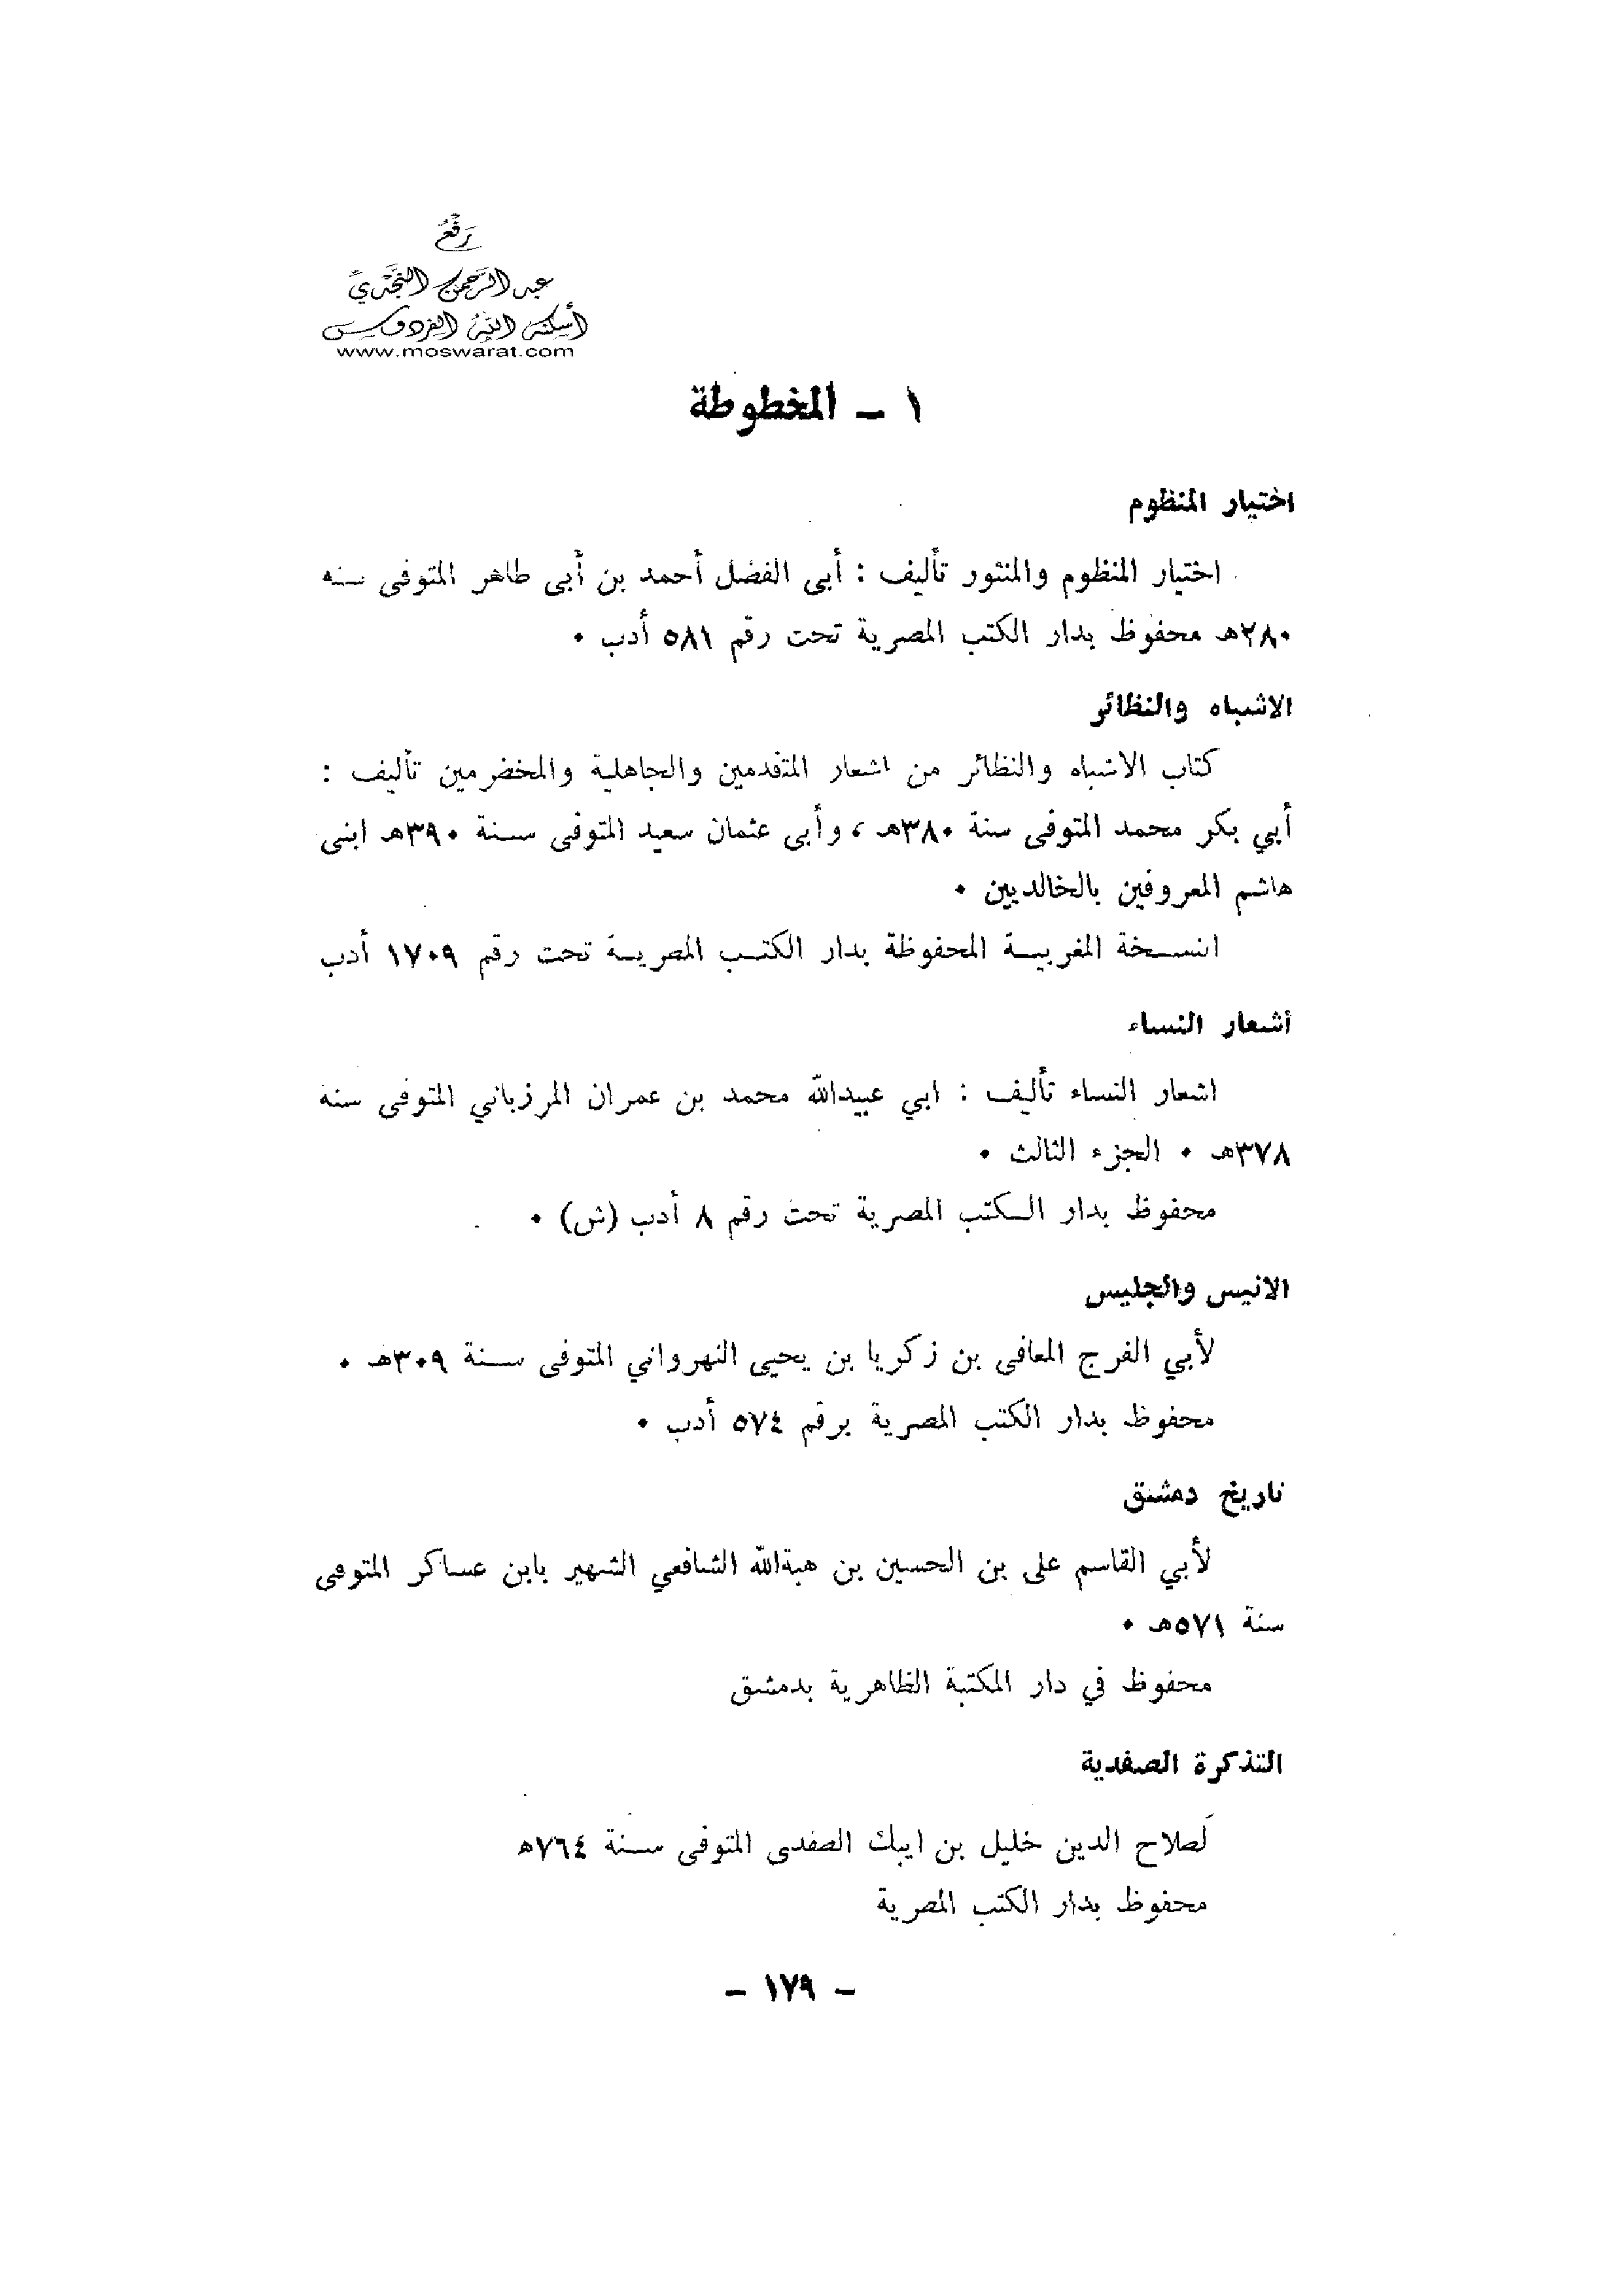 رفع
عبد الرحمن النجدي
أسكنه الله الفردوس
www.moswarat.com
١ ـ المخطوطة
اختيار المنظوم
اختيار المنظوم والمنثور تأليف : أبى الفضل أحمد بن أبى طاهر المتوفى سنه
٢٨٠هـ محفوظ بدار الكتب المصرية تحت رقم ٥٨١ أدب ٠
الاشباه والنظائر
كتاب الاشباه والنظائر من اشعار المتقدمين والجاهلية والمخضرمين تأليف :
أبي بكر محمد المتوفى سنة ٣٨٠هـ ، وأبى عثمان سعيد المتوفى سنة ٣٩٠هـ ابنى
هاشم المعروفين بالخالديين ٠
النسخة المغربية المحفوظة بدار الكتب المصرية تحت رقم ١٧٠٩ أدب
أشعار النساء
اشعار النساء تأليف : ابي عبيدالله محمد بن عمران المرزباني المتوفى سنة
٣٧٨هـ ٠ الجزء الثالث ٠
محفوظ بدار الكتب المصرية تحت رقم ٨ أدب (ش) ٠
الانيس والجليس
لأبي الفرج المعافى بن زكريا بن يحيى النهرواني المتوفى سنة ٣٠٩هـ ٠
محفوظ بدار الكتب المصرية برقم ٥٧٤ أدب ٠
تاريخ دمشق
لأبي القاسم على بن الحسين بن هبةالله الشافعي الشهير بابن عساكر المتوفى
سنة ٥٧١هـ ٠
محفوظ في دار المكتبة الظاهرية بدمشق
التذكرة الصفدية
لصلاح الدين خليل بن ايبك الصفدى المتوفى سنة ٧٦٤هـ
محفوظ بدار الكتب المصرية
ـ ١٧٩ ـ